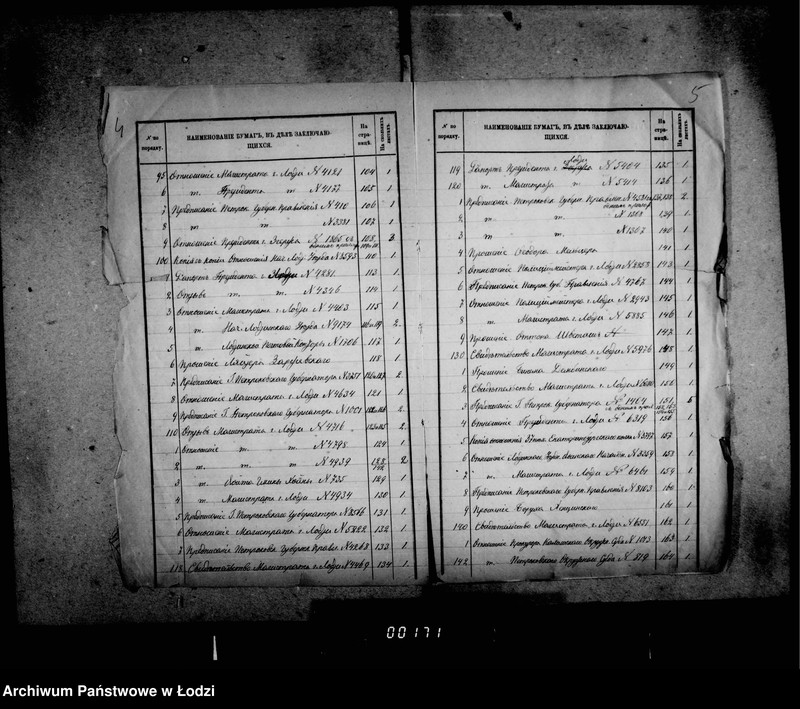 4
№ по порядку.
НАИМЕНОВАНІЕ БУМАГЪ, ВЪ ДѢЛѢ ЗАКЛЮЧАЮЩИХСЯ.
На страницѣ.
На сколькихъ листахъ.
95 Отношеніе Магистрата г. Лодзи № 4121 104 1
6 т. Президента т № 4177 105 1
7 Предписаніе Петрок. Губерн. Правленія № 410 106 1
8 т т № 3331 107 1
9 Отношеніе Президента г. Згержа № 1365 108 3
100 Копія съ копіи Отношенія Нач. Лод. Уезда № 3593 110 1
1 Рапортъ Президента г. Лодзи № 4281 113 1
2 Отзывъ т. т. № 4346 114 1
3 Отношеніе Магистрата г. Лодзи № 4403 115 1
4 т. Нач. Лодзинскаго Уезда № 9174 2
5 т. Лодзинской Почтовой Конторы № 1306 117 1
6 Прошеніе 118 1
7 Предписаніе Г. Петроковскаго Губернатора 2
8 Отношеніе Магистрата г. Лодзи № 4634 121 1
9 Предписаніе Г. Петроковскаго Губернатора № 1001 2
110 Отзывъ Магистрата г. Лодзи № 4716 2
1 Отношеніе т. т № 4798 124 1
2 т. т т № 4939 2
3 т. № 735 129 1
4 т. Магистрата г. Лодзи № 4934 130 1
5 Предписаніе Г. Петроковскаго Губернатора 131 1
6 Отношеніе Магистрата г. Лодзи № 5822 132 1
7 Предписаніе Петроковск. Губерн. Правл. № 4268 133 1
118 Свидѣтельство Магистрата г. Лодзи № 4469 134 1
5
№ по порядку.
НАИМЕНОВАНІЕ БУМАГЪ, ВЪ ДѢЛѢ ЗАКЛЮЧАЮЩИХСЯ.
На страницѣ.
На сколькихъ листахъ.
119 Рапортъ Президента г. Лодзи № 5404 135 1
120 т. Магистрата т. № 5414 136 1
1 Предписаніе Петроковск. Губерн. Правлен. 2
2 т т № 1368 139 1
3 т т № 1367 140 1
4 Прошеніе 141 1
5 Отношеніе Полиціймейстера г. Лодзи 143 1
6 Предписаніе Петрок. Губ. Правленія № 4767 144 1
7 Отношеніе Полиціймейстера г. Лодзи № 2943 145 1
8 т Магистрата г. Лодзи № 5885 146 1
9 Прошеніе 147 1
130 Свидѣтельство Магистрата г. Лодзи № 5976 148 1
1 Прошеніе 149 1
2 Свидѣтельство Магистрата г. Лодзи 150 1
3 Предписаніе Г. Петрок. Губернатора № 1464 151 5
4 Отношеніе Президента г. Лодзи № 6319 156 1
5 Копія отношенія 157 1
6 Отношеніе Лодзинскаго 158 1
7 т. Магистрата г. Лодзи № 6461 159 1
8 Предписаніе Петроковскаго Губерн. Правленія № 8103 160 1
9 Прошеніе 161 1
140 Свидѣтельство Магистрата г. Лодзи № 6551 162 1
1 Отношеніе Прокурора № 1013 163 1
142 т. Петроковскаго Окружнаго Суда № 819 164 1
00171
Archiwum Państwowe w Łodzi